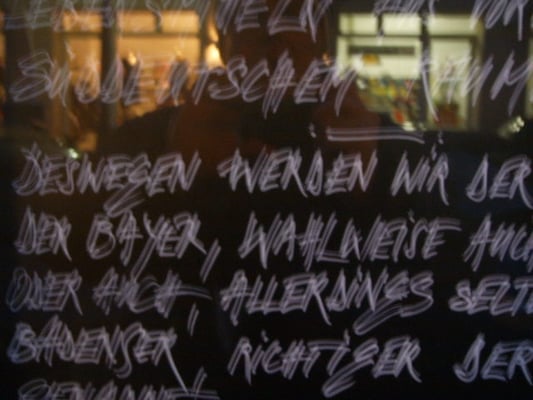 SÜDDEUTSCHEM RAUM
DESWEGEN WERDEN WIR DER
DER BAYER, WAHLWEISE AUCH
ODER AUCH, ALLERDINGS SELTE
BADENSER, RICHTIGER DER
GENANNT